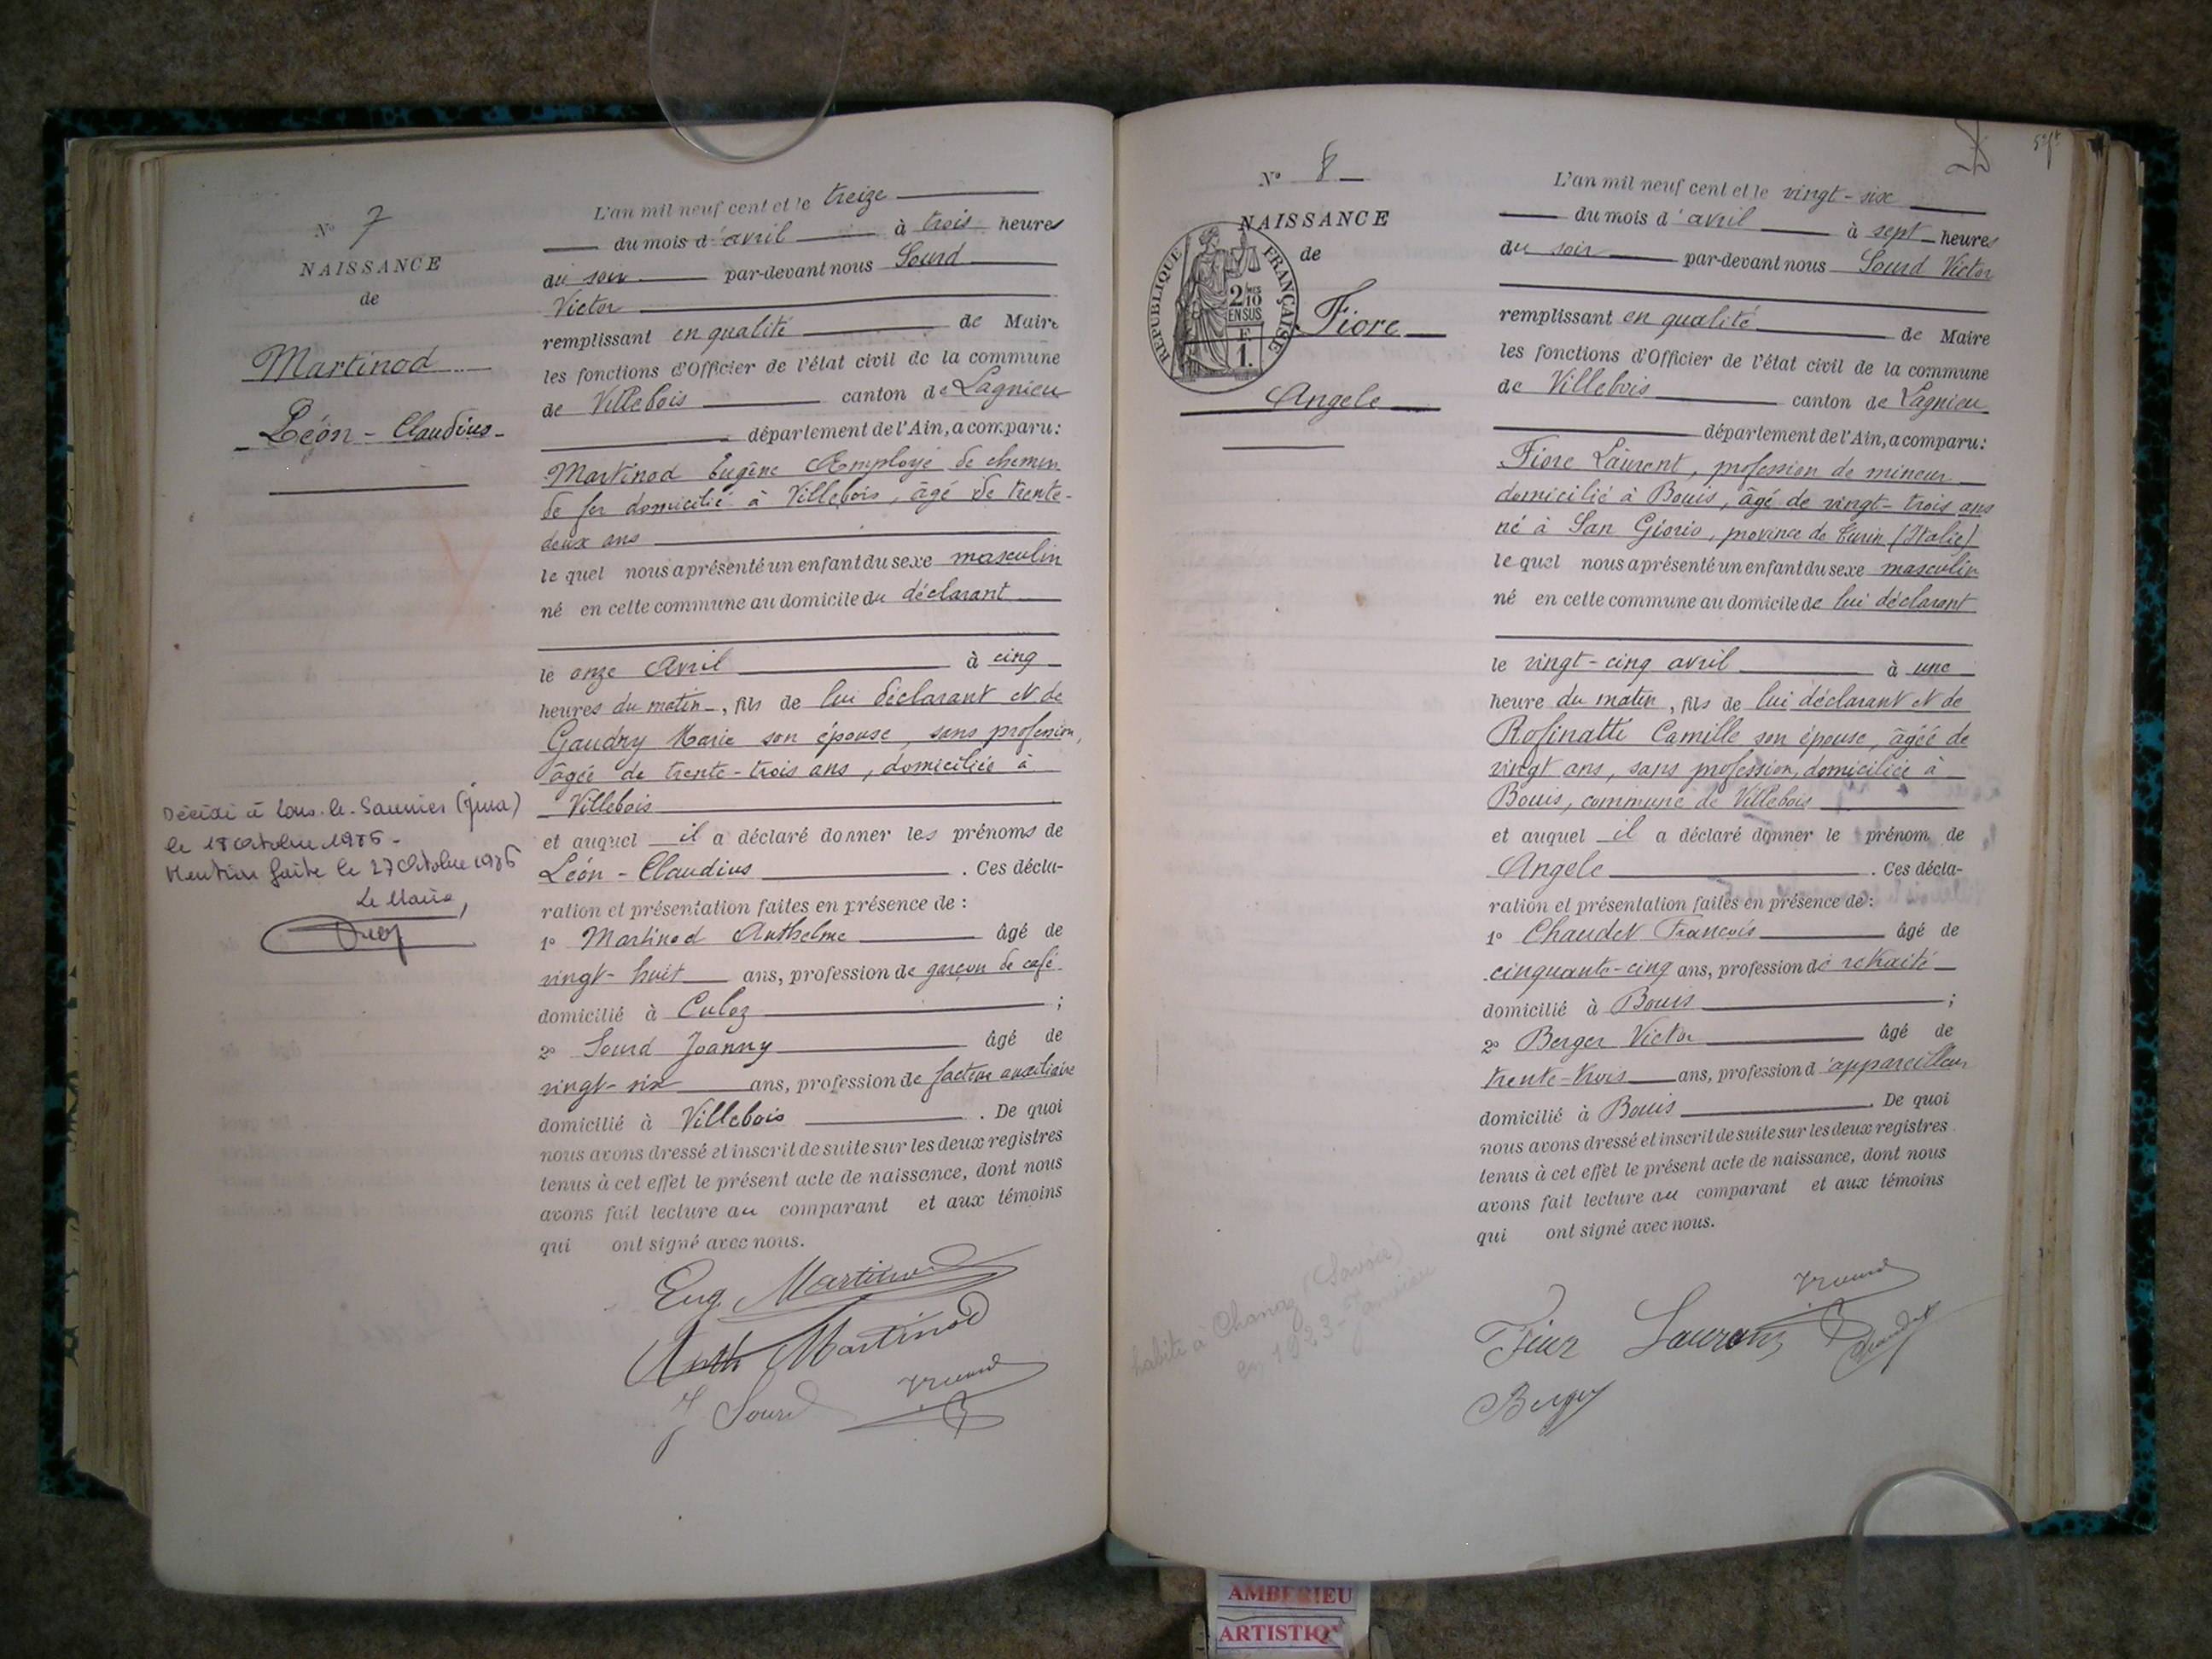 N° 7
NAISSANCE
de
Martinod
Léon - Claudius
Décédé à Lons-le-Saunier (Jura)
Mention faite le 27 octobre
Le Maire,
L'an mil neuf cent et le treize
du mois d'avril à trois heures
du soir par-devant nous Sourd
Victor
remplissant en qualité de Maire
les fonctions d'Officier de l'état civil de la commune
de Villebois canton de Lagnieu
département de l'Ain, a comparu:
Martinod Eugène Employé de chemin
de fer domicilié à Villebois, âgé de trente-
deux ans
le quel nous a présenté un enfant du sexe masculin
né en cette commune au domicile du déclarant
le onze Avril à cinq
heures du matin, fils de lui déclarant et de
Gaudry Marie son épouse, sans profession,
âgée de trente-trois ans, domiciliée à
Villebois
et auquel il a déclaré donner les prénoms de
Léon - Claudius. Ces décla-
ration et présentation faites en présence de :
1° Martinod Anthelme âgé de
vingt-huit ans, profession de garçon de café
domicilié à Culoz ;
2° Sourd Joanny âgé de
vingt-six ans, profession de facteur auxiliaire
domicilié à Villebois. De quoi
nous avons dressé et inscrit de suite sur les deux registres
tenus à cet effet le présent acte de naissance, dont nous
avons fait lecture au comparant et aux témoins
qui ont signé avec nous.
Eug. Martinod
Anth Martinod
J Sourd
N° 8
NAISSANCE
de
RÉPUBLIQUE FRANÇAISE
2 MES
10
EN SUS
F.
1.
Fiore
Angele
habite à Chanaz (Savoie)
en 1923 - Janvier
L'an mil neuf cent et le vingt-six
du mois d'avril à sept heures
du soir par-devant nous Sourd Victor
remplissant en qualité de Maire
les fonctions d'Officier de l'état civil de la commune
de Villebois canton de Lagnieu
département de l'Ain, a comparu:
Fiore Laurent, profession de mineur
domicilié à Bouis, âgé de vingt-trois ans
né à San Giorio, province de Turin (Italie)
le quel nous a présenté un enfant du sexe masculin
né en cette commune au domicile de lui déclarant
le vingt-cinq avril à une
heure du matin, fils de lui déclarant et de
Rofinatti Camille son épouse, âgée de
vingt ans, sans profession, domiciliée à
Bouis, commune de Villebois
et auquel il a déclaré donner le prénom de
Angele. Ces décla-
ration et présentation faites en présence de :
1° Chaudet Francois âgé de
cinquante-cinq ans, profession de retraité
domicilié à Bouis ;
2° Berger Victor âgé de
trente-trois ans, profession d'appareilleur
domicilié à Bouis. De quoi
nous avons dressé et inscrit de suite sur les deux registres
tenus à cet effet le présent acte de naissance, dont nous
avons fait lecture au comparant et aux témoins
qui ont signé avec nous.
Chaudet
Berger
AMBERIEU
ARTISTIQ